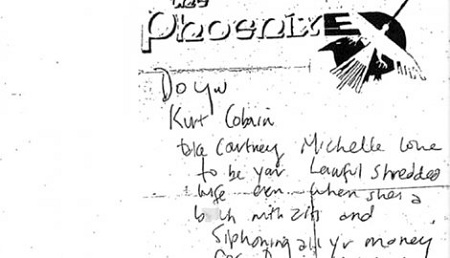 The
Phoenix
Do you
Kurt Cobain
take Cortney Michelle Love
to be your Lawful shredded
wife even when shes a
b ch with zits and
siphoning all yr money